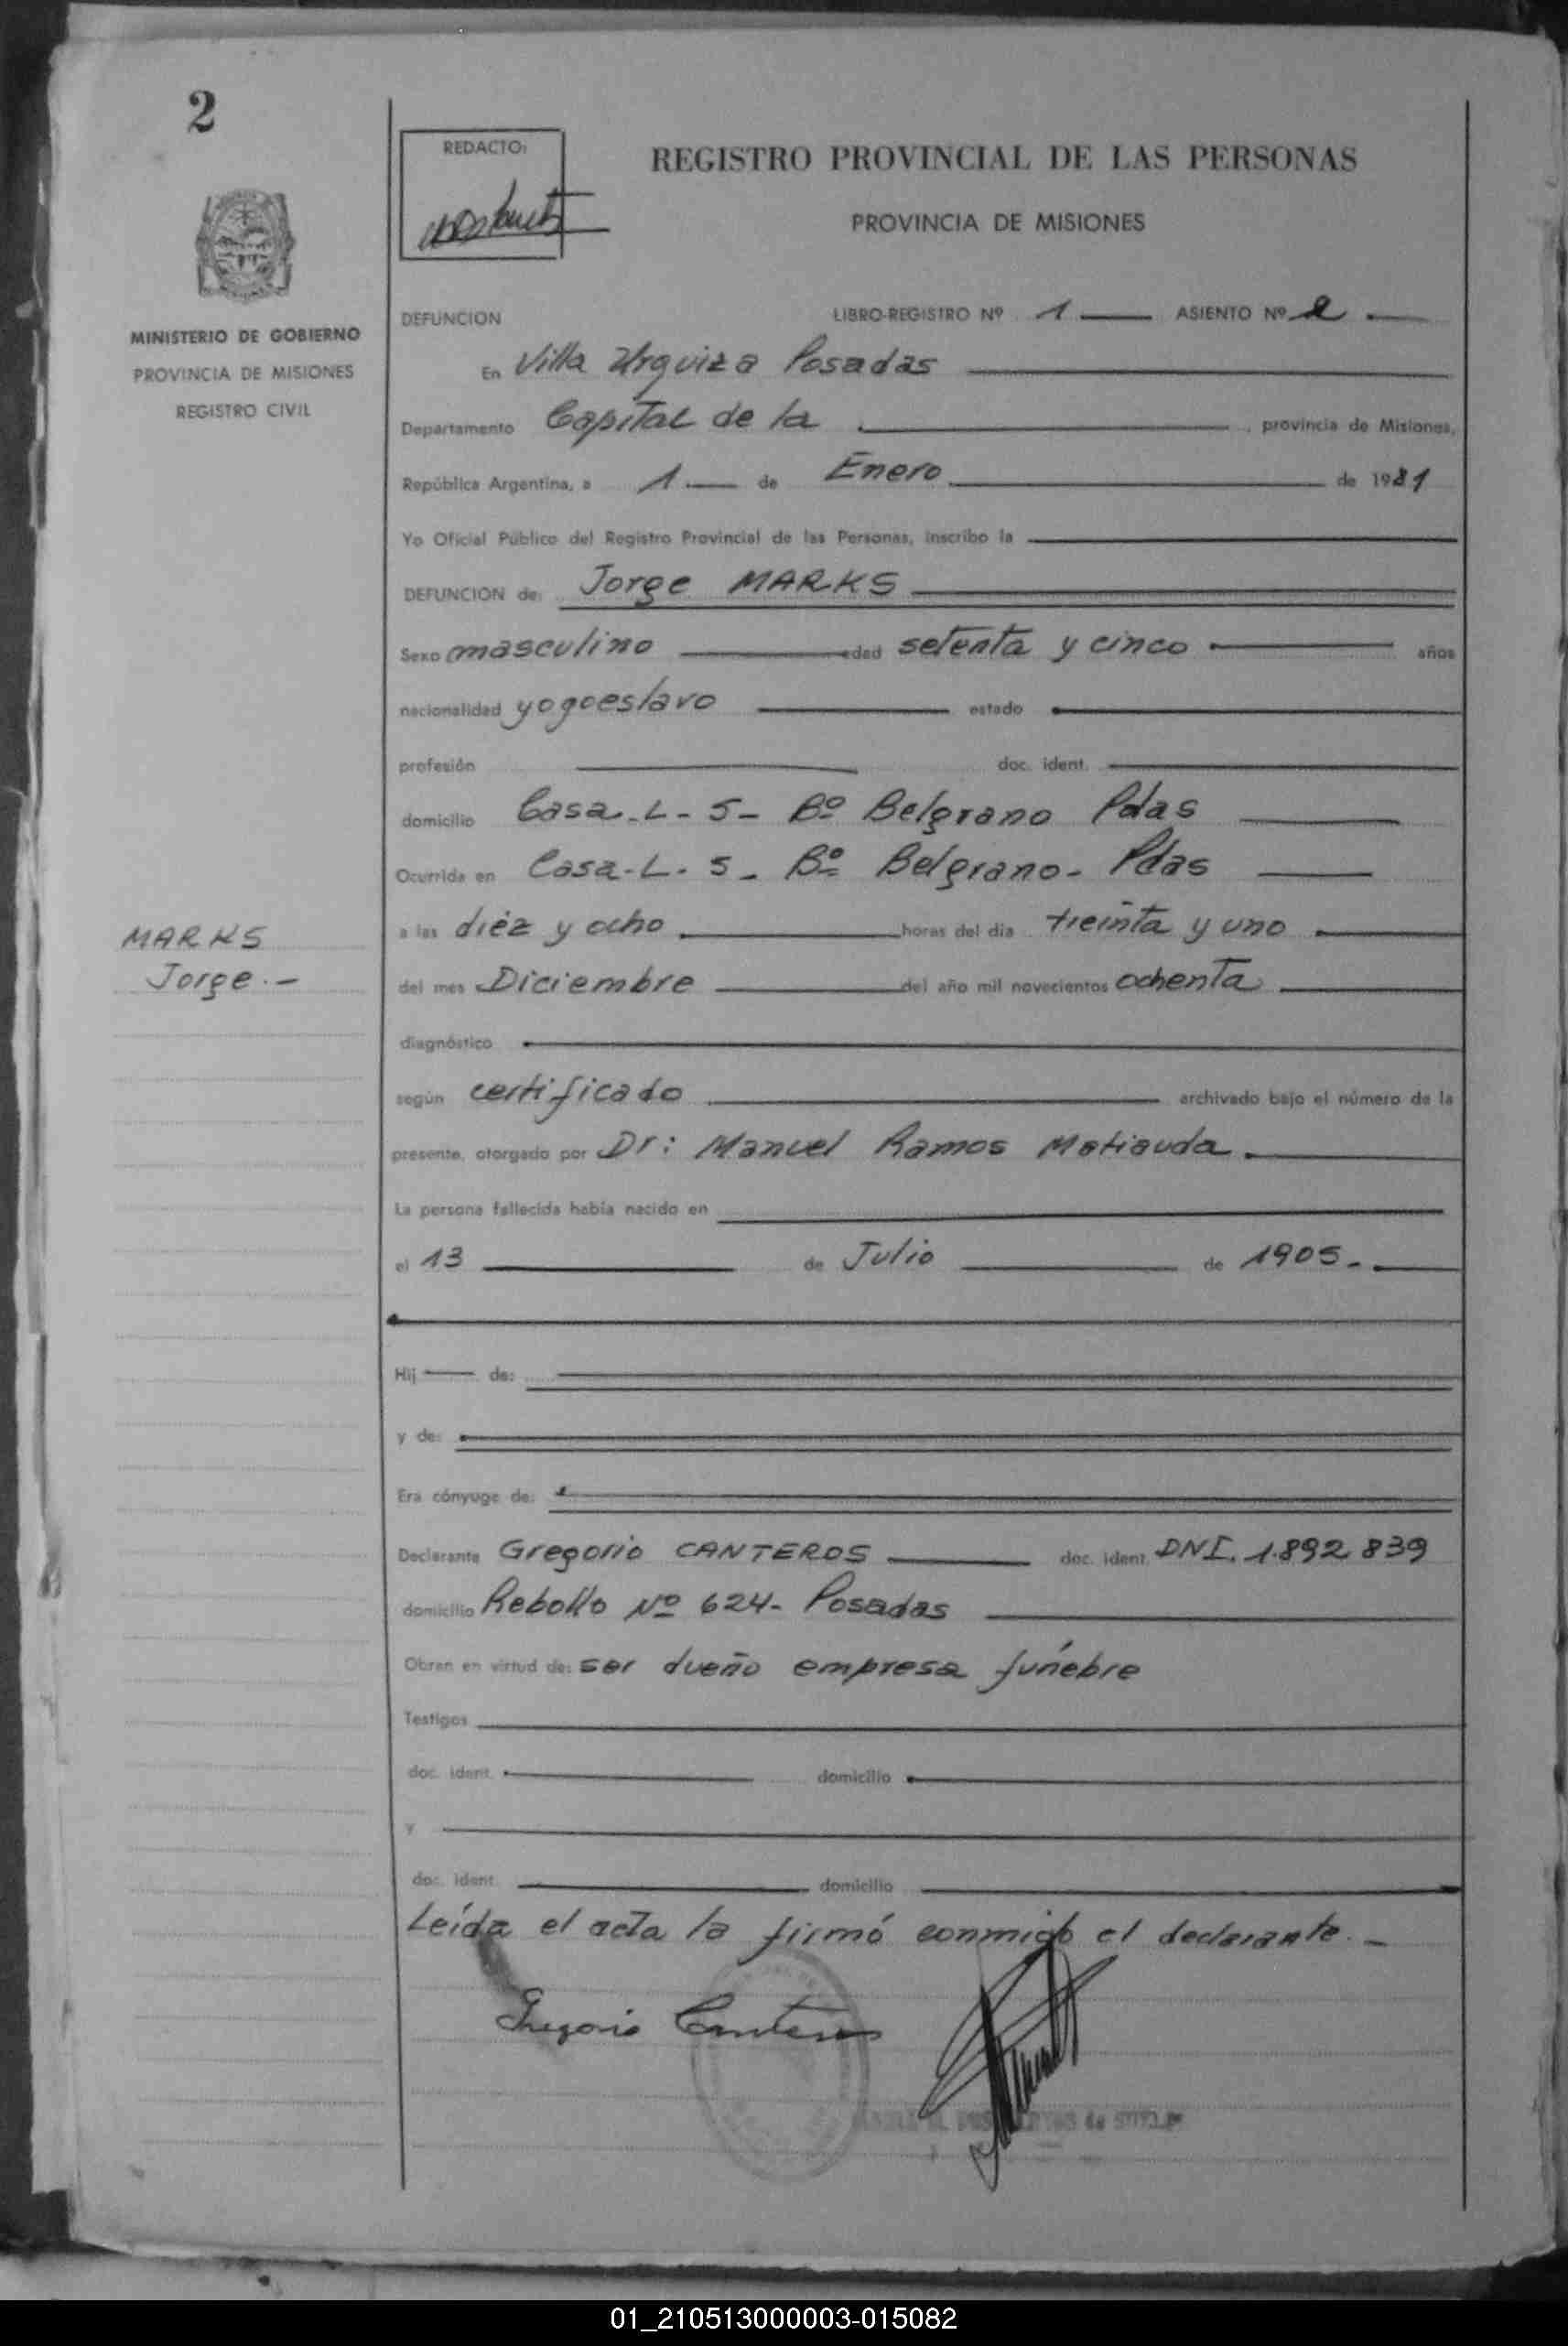 2
REDACTO:
REGISTRO PROVINCIAL DE LAS PERSONAS
PROVINCIA DE MISIONES
MINISTERIO DE GOBIERNO
PROVINCIA DE MISIONES
REGISTRO CIVIL
DEFUNCION LIBRO-REGISTRO Nº 1 ASIENTO Nº 2
En Villa Urquiza Posadas
Departamento Capital de la , provincia de Misiones,
República Argentina, a 1 de Enero de 1981
Yo Oficial Público del Registro Provincial de las Personas, inscribo la
DEFUNCION de: Jorge MARKS
Sexo masculino edad setenta y cinco años
nacionalidad yogoeslavo estado
profesión doc. ident.
domicilio Casa-L-5- Bº Belgrano Pdas
Ocurrida en Casa-L.5- Bº Belgrano- Pdas
MARKS
Jorge.-
a las diéz y ocho horas del día treinta y uno
del mes Diciembre del año mil novecientos ochenta
diagnóstico
según certificado archivado bajo el número de la
presente, otorgado por Dr: Manuel Ramos Matiauda.
La persona fallecida había nacido en
el 13 de Julio de 1905.
Hij de:
y de:
Era cónyuge de:
Declarante Gregorio CANTEROS doc. ident. DNI. 1.892.839
domicilio Rebollo Nº 624- Posadas
Obran en virtud de: ser dueño empresa fúnebre
Testigos
doc. ident. domicilio
y
doc. ident. domicilio
Leída el acta la firmó conmigo el declarante.-
Gregorio Canteros
de
01_210513000003-015082